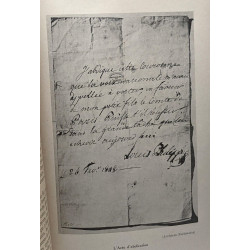 J'abdique cette couronne
que la voix nationale m'avait
appelé à porter, en faveur
de mon petit fils le Comte de
Paris. Puisse-t-il réussir
dans la grande tâche qui lui
échoit aujourd'hui
Louis Philippe
24 Fevr. 1848
L'Acte d'abdication